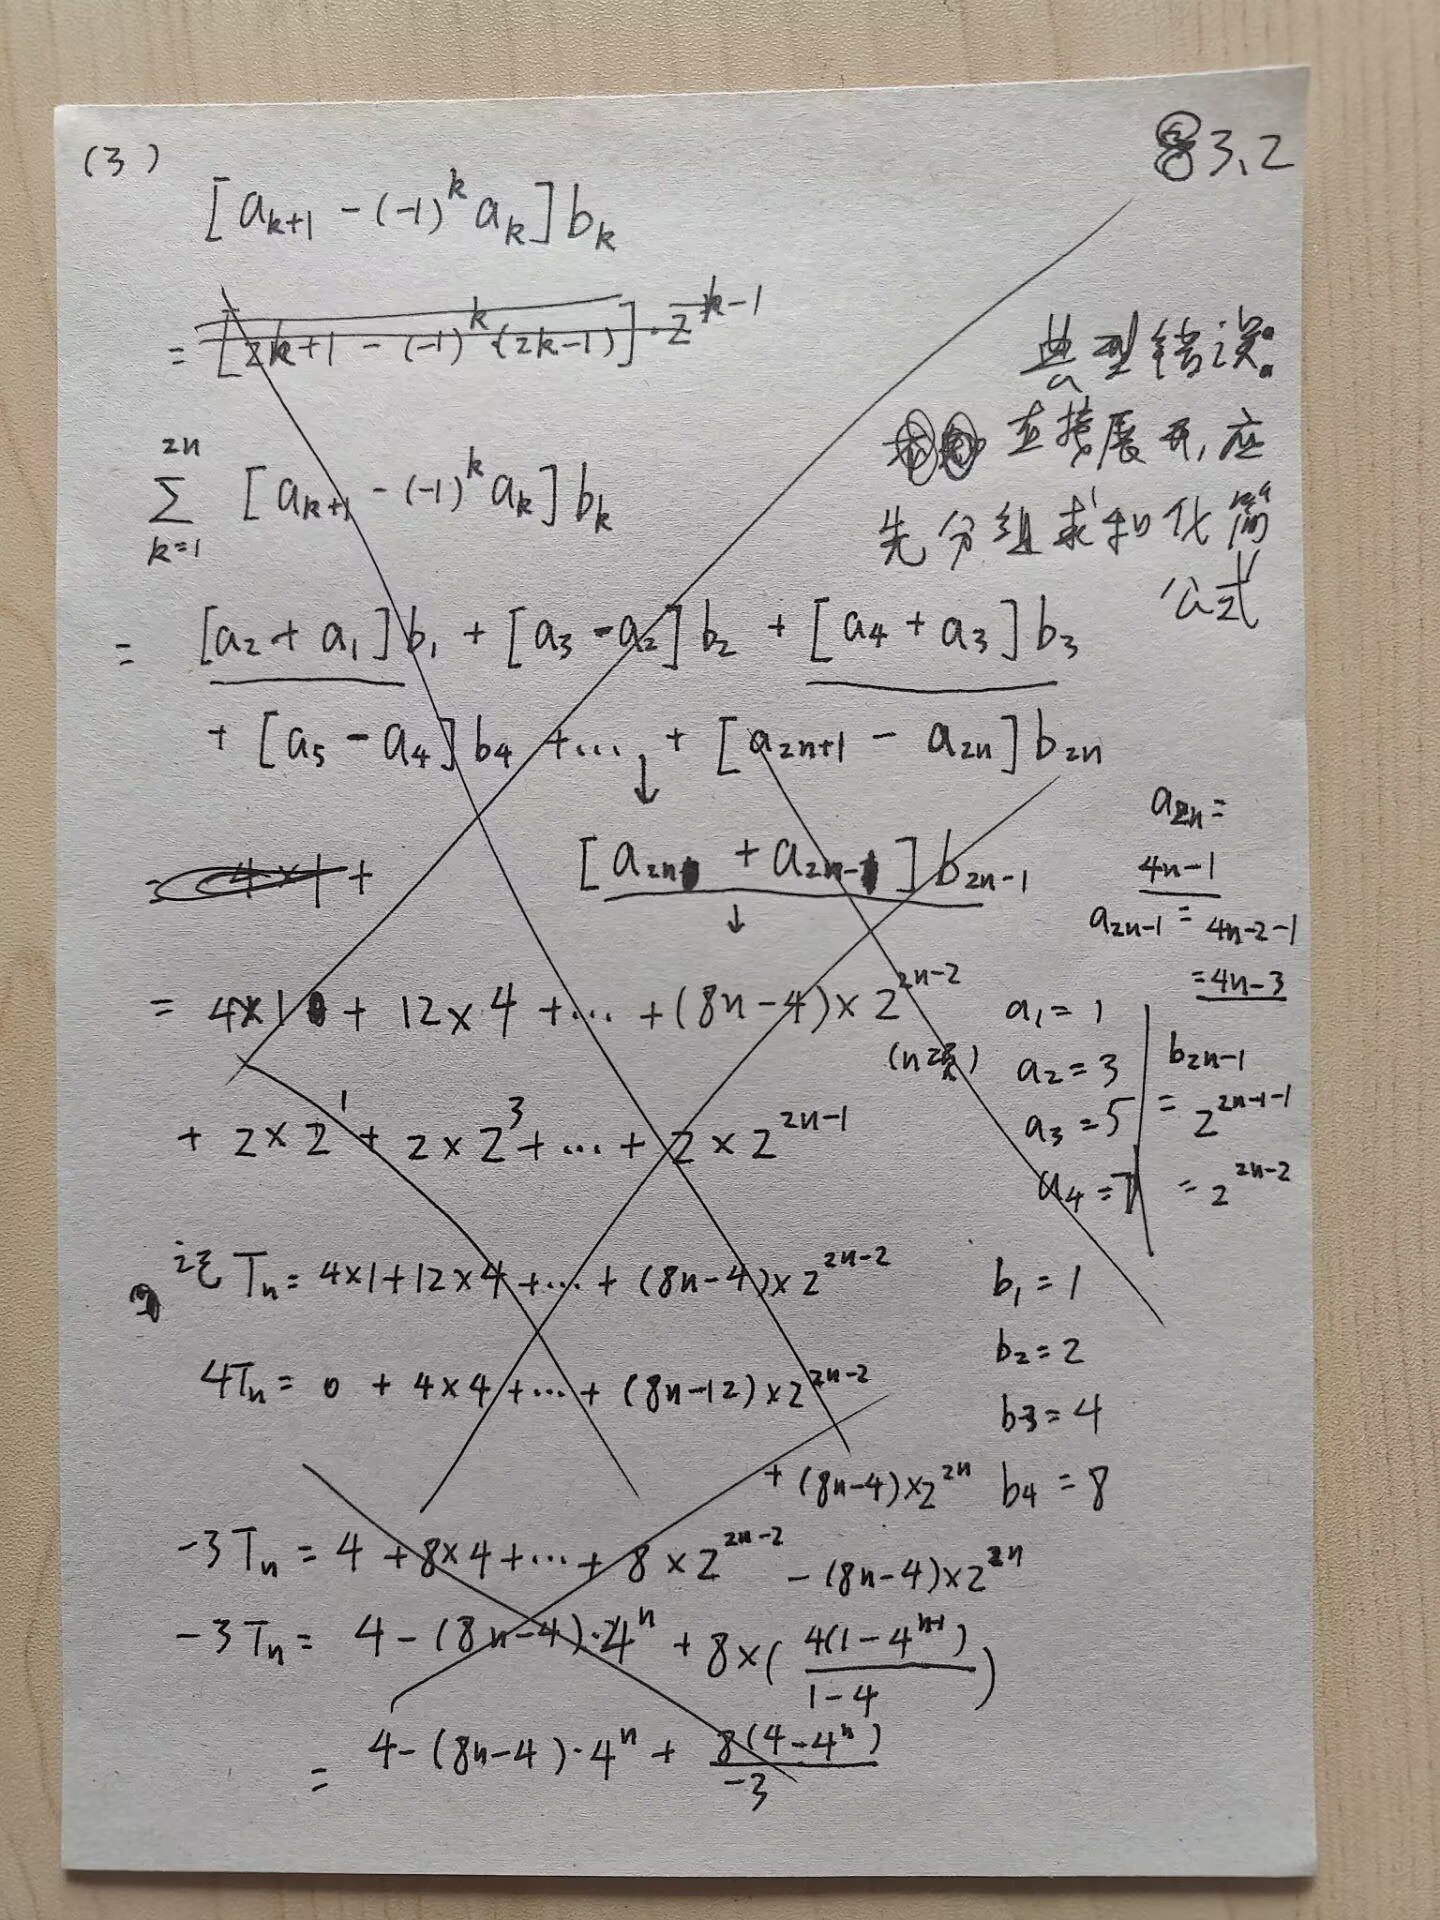 (3)
3.2
[a_{k+1} - (-1)^k a_k] b_k
= [2k+1 - (-1)^k (2k-1)] · 2^{k-1}
典型错误:
直接展开, 应
先分组求和化简
公式
\sum_{k=1}^{2n} [a_{k+1} - (-1)^k a_k] b_k
= [a_2 + a_1] b_1 + [a_3 - a_2] b_2 + [a_4 + a_3] b_3
+ [a_5 - a_4] b_4 + ... + [a_{2n+1} - a_{2n}] b_{2n}
↓
= 4×1 +
[a_{2n} + a_{2n-1}] b_{2n-1}
↓
a_{2n} =
4n-1
a_{2n-1} = 4n-2-1
= 4n-3
= 4×1 + 12×4 + ... + (8n-4)×2^{2n-2}
(n项)
+ 2×2^1 + 2×2^3 + ... + 2×2^{2n-1}
a_1 = 1
a_2 = 3
a_3 = 5
a_4 = 7
b_{2n-1}
= 2^{2n-1-1}
= 2^{2n-2}
记 T_n = 4×1 + 12×4 + ... + (8n-4)×2^{2n-2}
4T_n = 0 + 4×4 + ... + (8n-12)×2^{2n-2}
+ (8n-4)×2^{2n}
b_1 = 1
b_2 = 2
b_3 = 4
b_4 = 8
-3T_n = 4 + 8×4 + ... + 8×2^{2n-2} - (8n-4)×2^{2n}
-3T_n = 4 - (8n-4)·4^n + 8×( \frac{4(1-4^{n-1})}{1-4} )
= 4 - (8n-4)·4^n + \frac{8(4-4^n)}{-3}